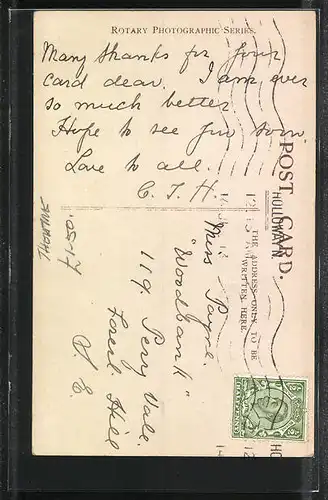 ROTARY PHOTOGRAPHIC SERIES.
Many thanks for your
card dear. I am ever
so much better
Hope to see you soon.
Love to all.
C. J. H.
POST CARD.
THE ADDRESS ONLY TO BE
WRITTEN HERE.
HOLLOWAY
Miss Payne.
"Woodbank"
119. Perry Vale.
Forest Hill
S. E.